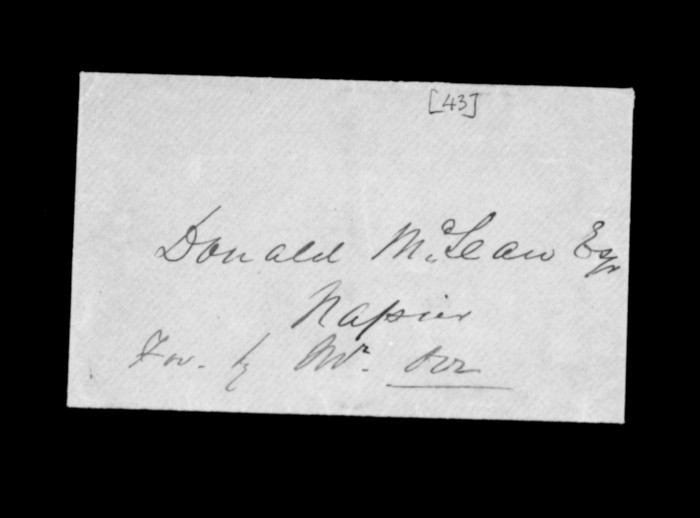 [43]
Donald McLean Esqr
Napier
Fav. by Mr. Orr